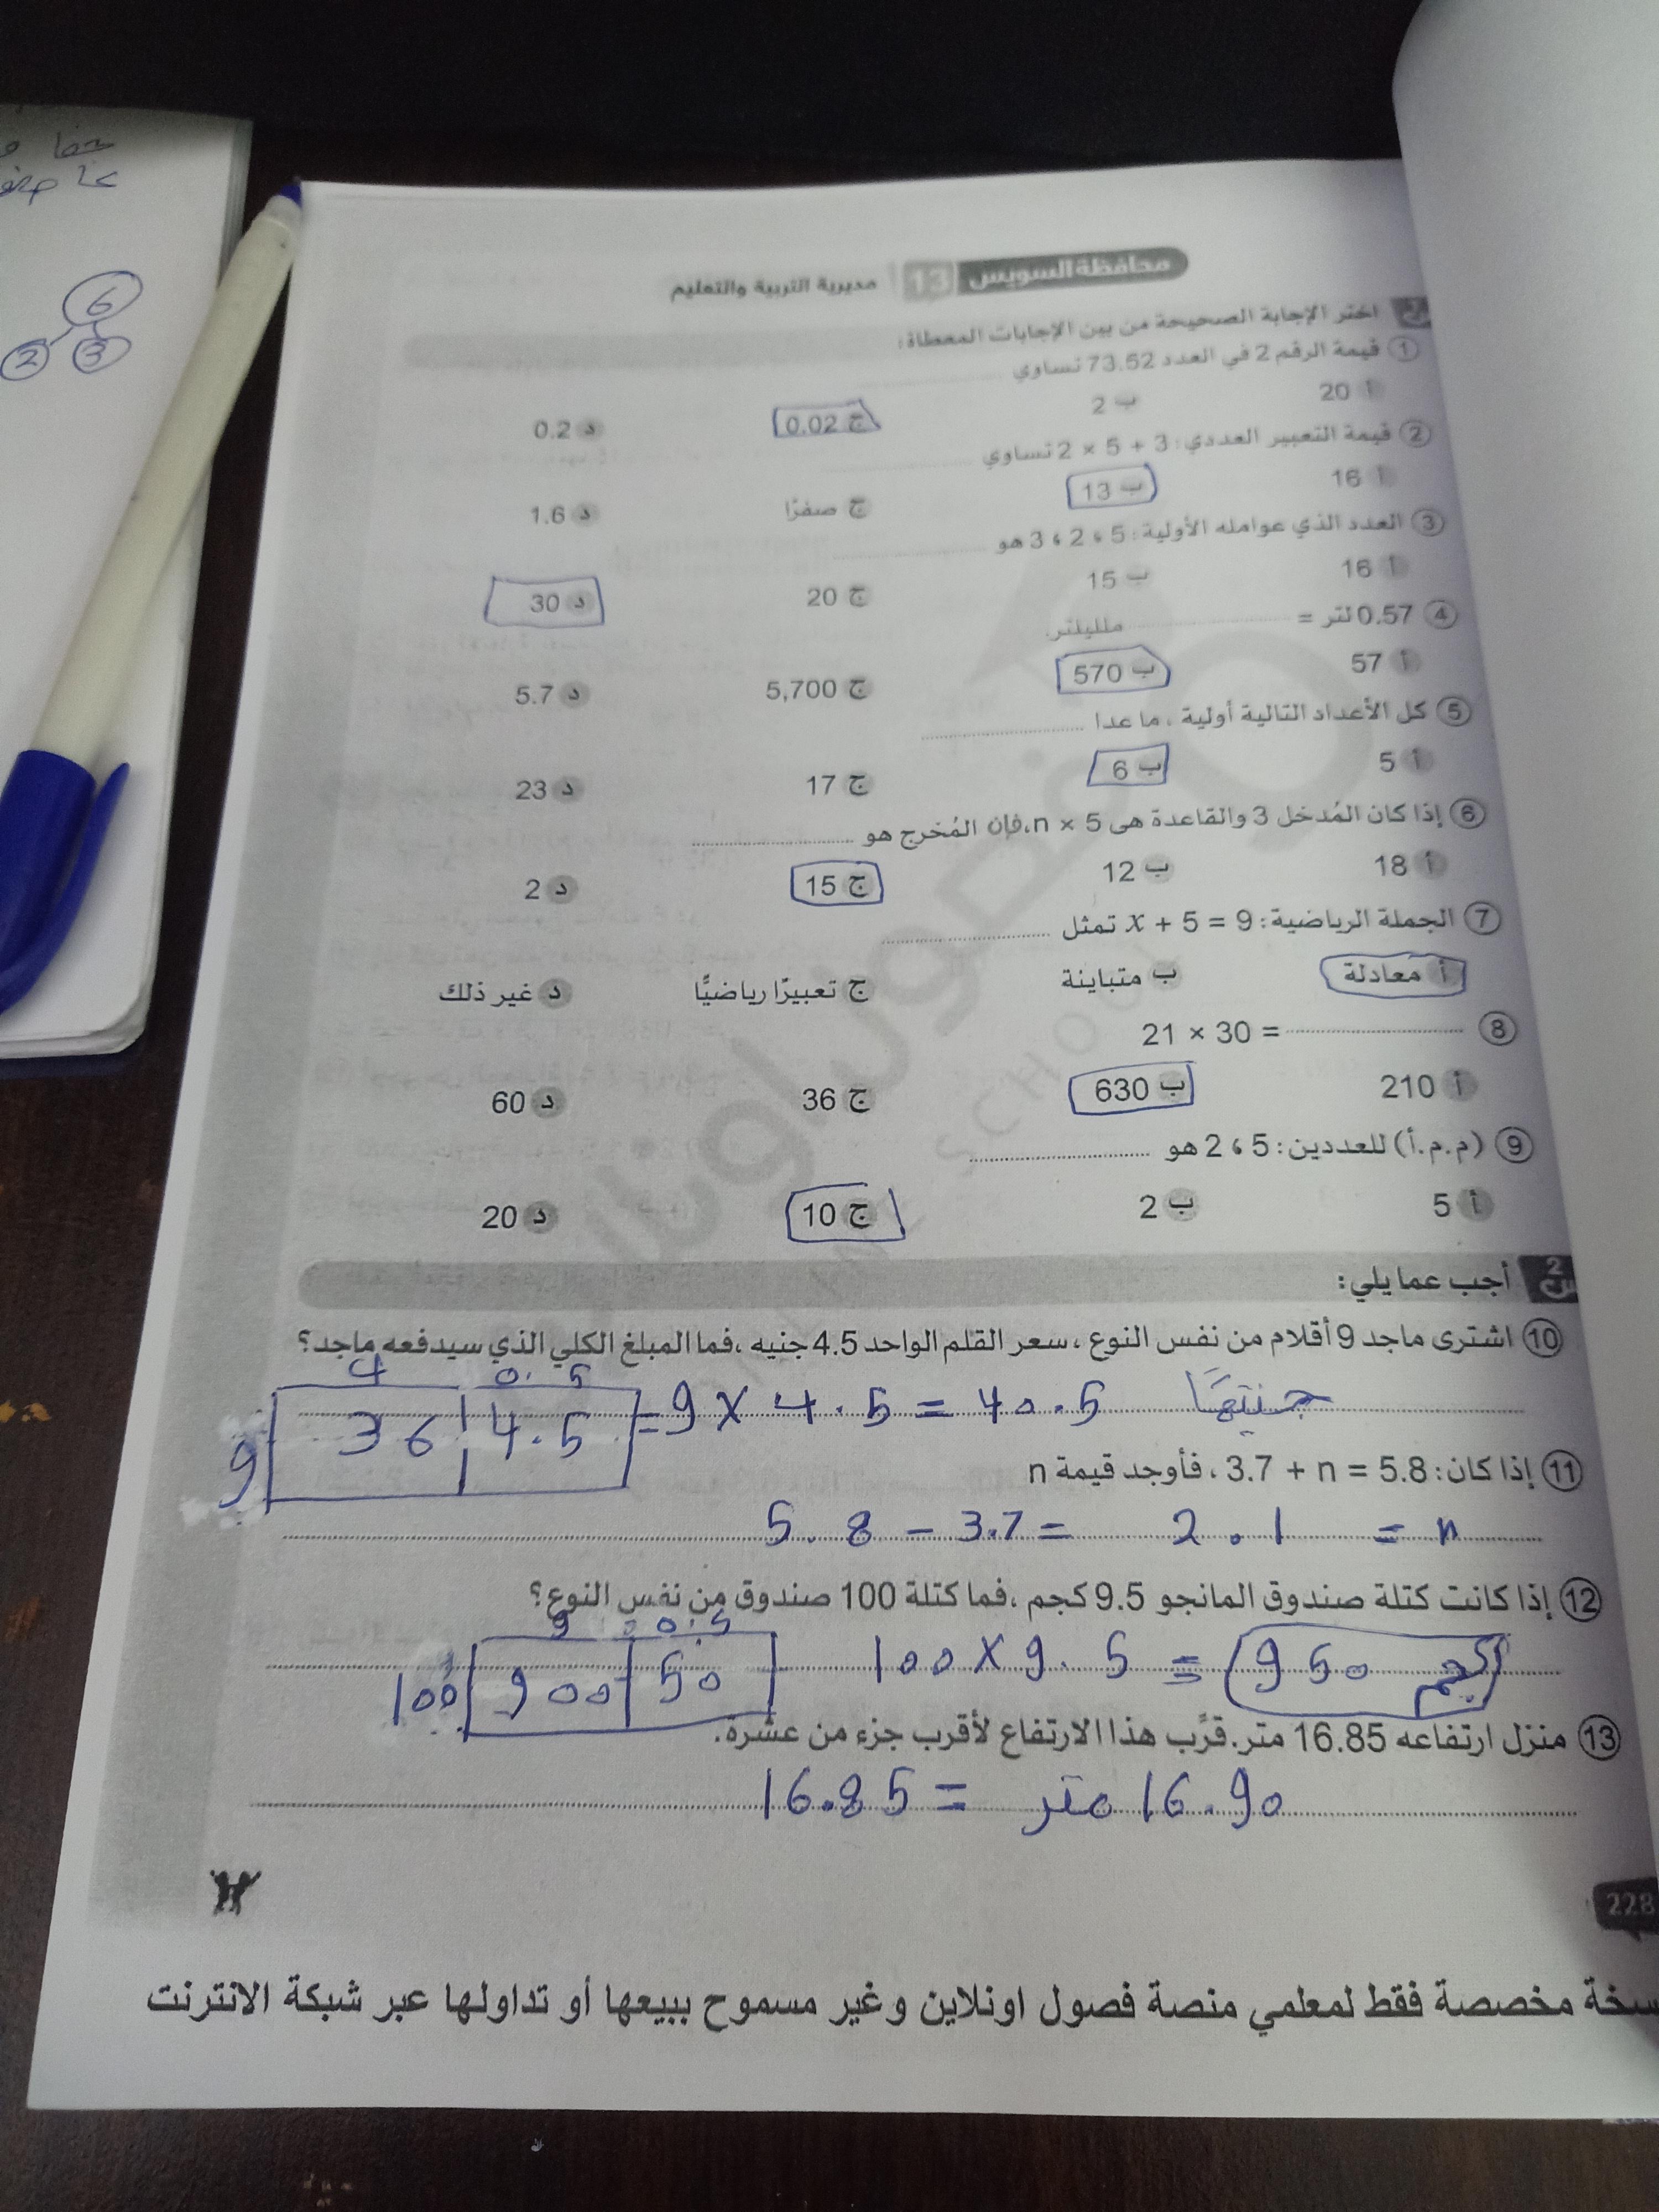 محافظة السويس 13 مديرية التربية والتعليم
اختر الإجابة الصحيحة من بين الإجابات المعطاة:
① قيمة الرقم 2 في العدد 73.52 تساوي
أ 20 ب 2 ج 0.02 د 0.2
② قيمة التعبير العددي: 3 + 5 × 2 تساوي
أ 16 ب 13 ج صفرًا د 1.6
③ العدد الذي عوامله الأولية: 5 ، 2 ، 3 هو
أ 16 ب 15 ج 20 د 30
④ 0.57 لتر = ملليلتر.
أ 57 ب 570 ج 5,700 د 5.7
⑤ كل الأعداد التالية أولية ، ما عدا
أ 5 ب 6 ج 17 د 23
⑥ إذا كان المُدخل 3 والقاعدة هى n × 5، فإن المُخرج هو
أ 18 ب 12 ج 15 د 2
⑦ الجملة الرياضية: x + 5 = 9 تمثل
أ معادلة ب متباينة ج تعبيرًا رياضيًّا د غير ذلك
⑧ 21 × 30 =
أ 210 ب 630 ج 36 د 60
⑨ (م.م.أ) للعددين: 5 ، 2 هو
أ 5 ب 2 ج 10 د 20
س2 أجب عما يلي:
⑩ اشترى ماجد 9 أقلام من نفس النوع ، سعر القلم الواحد 4.5 جنيه ، فما المبلغ الكلي الذي سيدفعه ماجد؟
4 0.5
9 36 4.5 = 9 × 4.5 = 40.5 جنيهًا
⑪ إذا كان: 3.7 + n = 5.8 ، فأوجد قيمة n
5.8 - 3.7 = 2.1 = n
⑫ إذا كانت كتلة صندوق المانجو 9.5 كجم ، فما كتلة 100 صندوق من نفس النوع؟
9 0.5
100 900 50 100 × 9.5 = 950 كجم
⑬ منزل ارتفاعه 16.85 متر. قرِّب هذا الارتفاع لأقرب جزء من عشرة.
16.85 = متر 16.90
228
سخة مخصصة فقط لمعلمي منصة فصول اونلاين وغير مسموح ببيعها أو تداولها عبر شبكة الانترنت
6
2 3